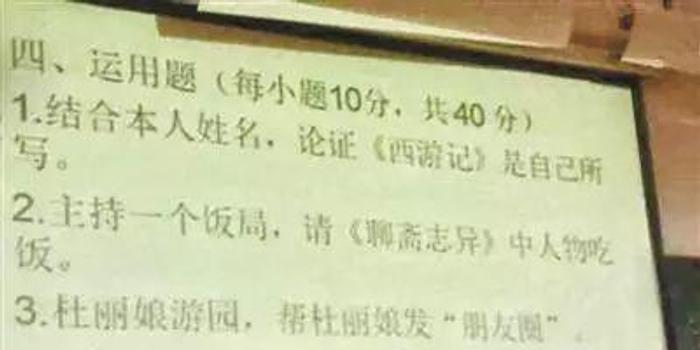 四、运用题（每小题10分，共40分）
1.结合本人姓名，论证《西游记》是自己所
写。
2.主持一个饭局，请《聊斋志异》中人物吃
饭。
3.杜丽娘游园，帮杜丽娘发“朋友圈”.